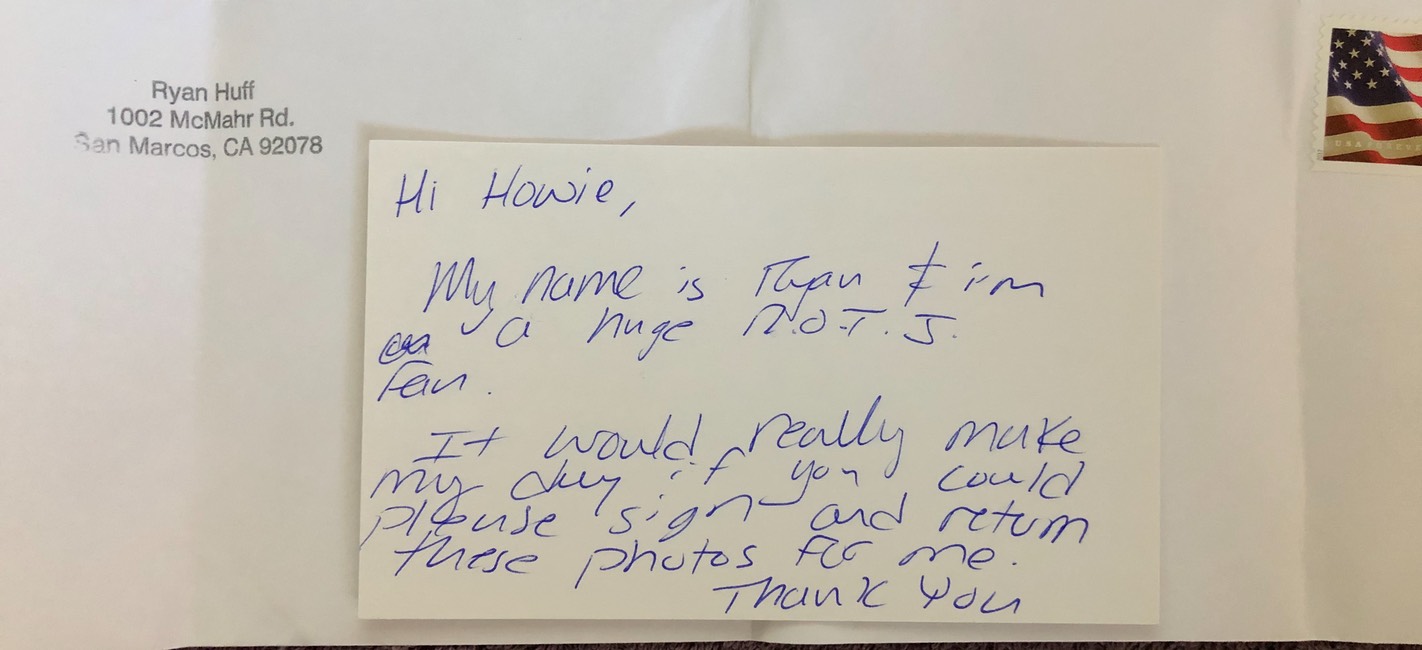 Ryan Huff
1002 McMahr Rd.
San Marcos, CA 92078
Hi Howie,
My name is Ryan & i'm
a huge R.O.T.J.
fan.
It would really make
my day if you could
please sign and return
these photos for me.
Thank You
USA FOREVER